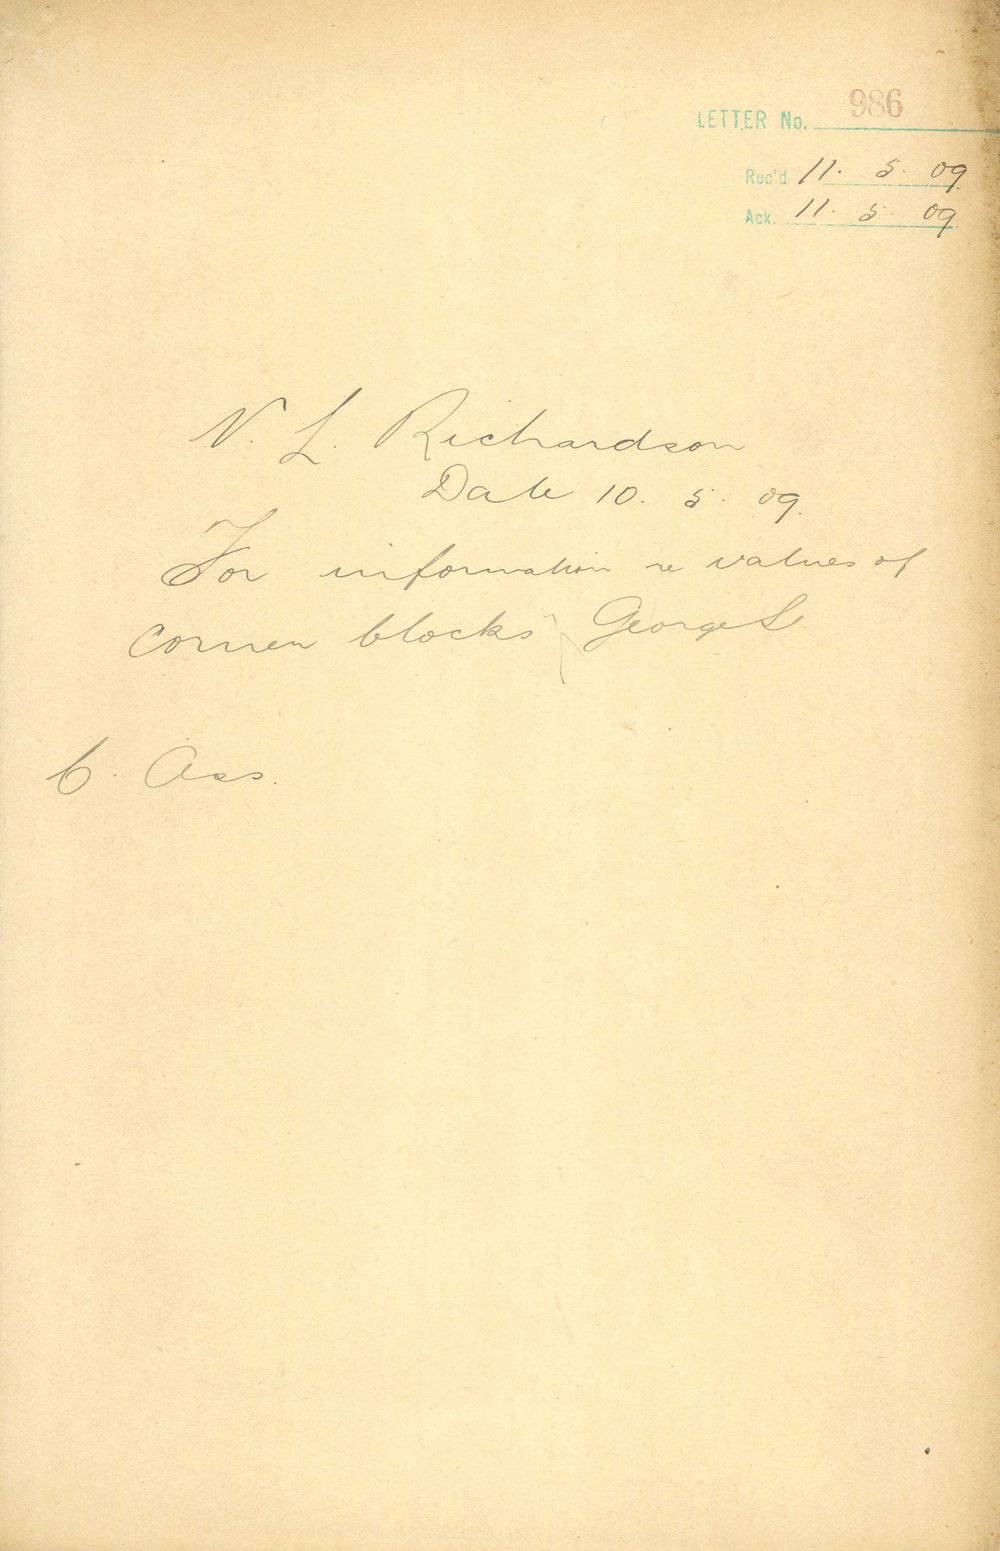 LETTER No. 986
Rec'd 11. 5. 09
Ack. 11. 5. 09
N. L. Richardson
Date 10. 5. 09.
For information re values of
corner blocks George S.
C. Ass.